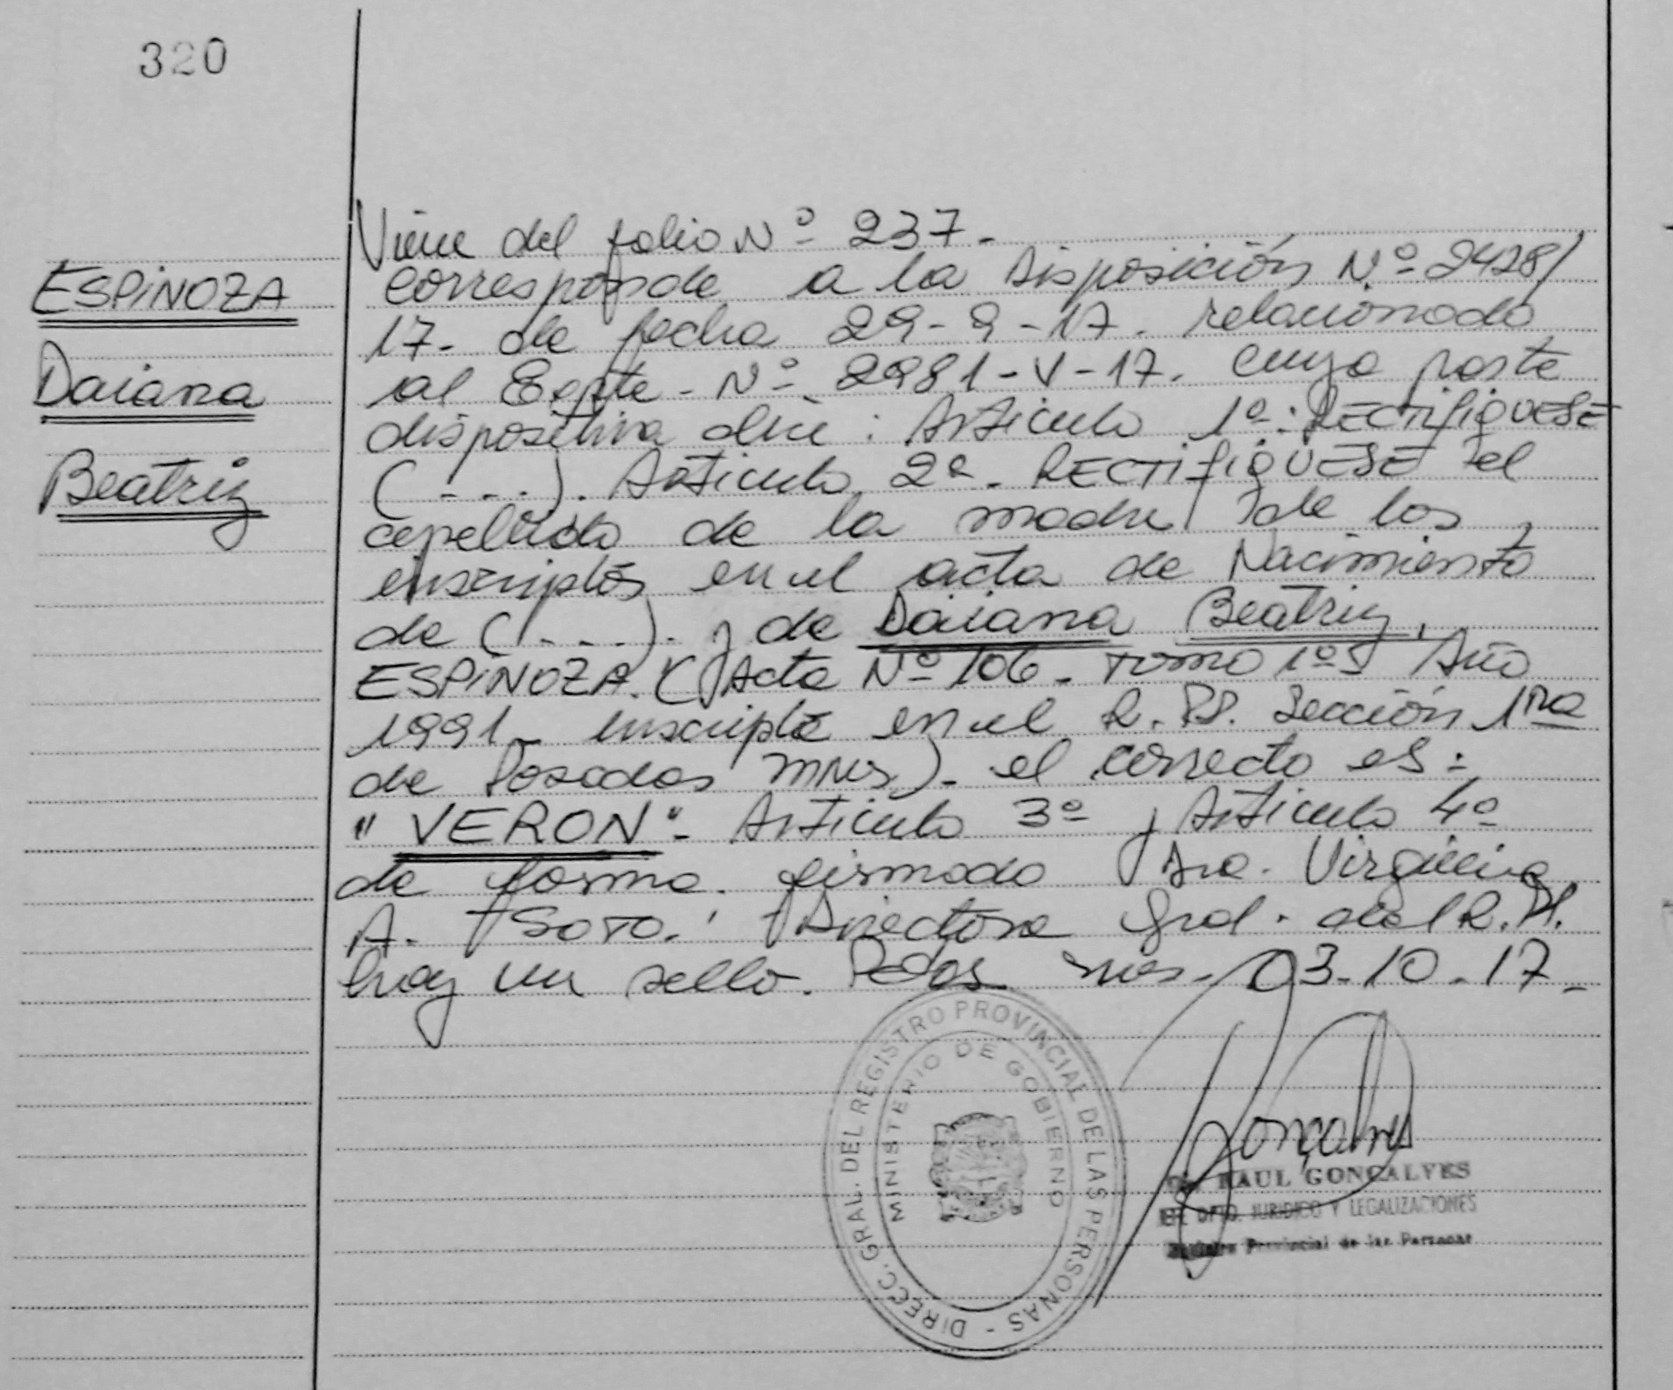 320
ESPINOZA
Daiana
Beatriz
Viene del folio Nº 237.-
corresponde a la Disposición Nº 2428/
17- de fecha 29-9-17. relacionado
al Expte- Nº 2981-V-17. cuya parte
dispositiva dice: Artículo 1º: RECTIFIQUESE
(....). Artículo 2º- RECTIFIQUESE el
apellido de la madre de los
inscriptos en el acta de Nacimiento
de (....). y de Daiana Beatriz,
ESPINOZA. (Acta Nº 106- Tomo 1º Año
1991- inscripta en el R.P.P. Sección 1ra
de Posadas Mnes)- el correcto es:
"VERON"- Artículo 3º y Artículo 4º
de forma. firmado Dra.
A. SOTO. Directora Gral. del R.P.P.
hay un sello. Pdas Mnes- 03-10-17-
DIRECC. GRAL. DEL REGISTRO PROVINCIAL DE LAS PERSONAS -
MINISTERIO DE GOBIERNO
Gonçalves
RAUL GONÇALVES
DPTO. JURIDICO Y LEGALIZACIONES
Provincial de las Personas